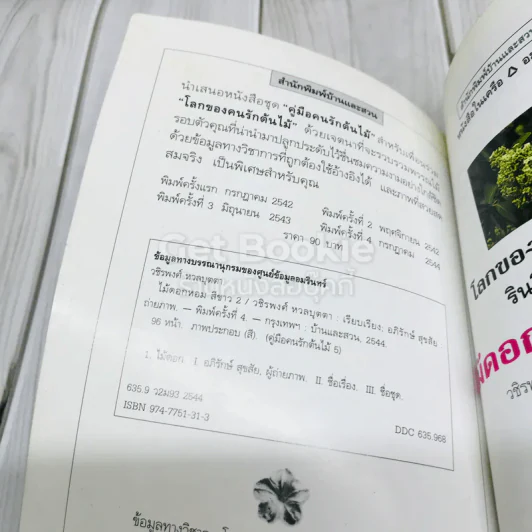 สำนักพิมพ์บ้านและสวน
นำเสนอหนังสือชุด "คู่มือคนรักต้นไม้" สำหรับเพื่อน
"โลกของคนรักต้นไม้" ด้วยเจตนาที่จะรวบรวมพรรณไม้
รอบตัวคุณที่น่านำมาปลูกประดับไว้ชื่นชมความงามอย่างใกล้ชิด
ด้วยข้อมูลทางวิชาการที่ถูกต้องใช้อ้างอิงได้ และภาพที่สวยสด
สมจริง เป็นพิเศษสำหรับคุณ
พิมพ์ครั้งแรก กรกฎาคม 2542 พิมพ์ครั้งที่ 2 พฤศจิกายน 2542
พิมพ์ครั้งที่ 3 มิถุนายน 2543 พิมพ์ครั้งที่ 4 กรกฎาคม 2544
ราคา 90 บาท
Get Bookie
ร้านหนังสือบุ๊คกี้
ข้อมูลทางบรรณานุกรมของศูนย์ข้อมูลอมรินทร์
วชิรพงศ์ หวลบุตตา
ไม้ดอกหอม สีขาว 2 / วชิรพงศ์ หวลบุตตา : เรียบเรียง; อภิรักษ์ สุขสัย :
ถ่ายภาพ. — พิมพ์ครั้งที่ 4. — กรุงเทพฯ : บ้านและสวน, 2544.
96 หน้า. ภาพประกอบ (สี). (คู่มือคนรักต้นไม้ 5)
1. ไม้ดอก. I. อภิรักษ์ สุขสัย, ผู้ถ่ายภาพ. II. ชื่อเรื่อง. III. ชื่อชุด.
635.9 ว2ม93 2544
DDC 635.968
ISBN 974-7751-31-3
ข้อมูลทางวิชา
สำนักพิมพ์บ้านและสวน
หนังสือในเครือ
โลกของ
ม้ดอก
วชิรพ